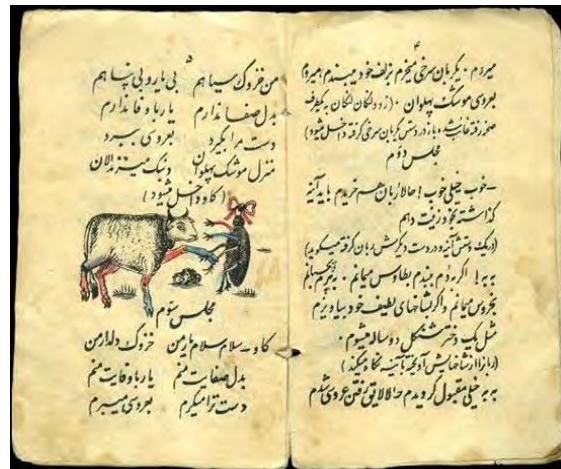 ۴
میروم . یکربان سرخی میخرم بزلف خود میبندم میروم
بعروسی موشک پهلوان . (زود لنگان لنگان به یکطرف
صحنه رفته غائب شد . باز در دستش ربان سرخی گرفته داخل میشود)
مجلس دوم
-خوب خیلی خوب ! حالا ربان هم خریدم باید آئینه
گذاشته بخود زینت دهم
(در یک دستش آئینه و در دست دیگرش ربان گرفته میگوید)
به به ! اگر بدم ببندم بطاوس میمانم .
بخروس میمانم و اگر بشاخهای لطیف خود بیاویزم
مثل یک دختر دو ساله میشوم .
(ربان را از شاخهایش آویخته بآئینه نگاه میکند)
به به خیلی مقبول گردیدم حالا لایق رفتن عروسی شدم
۵
من خزوک سیاهم بی یار و بی پناهم
بدل صفا ندارم یار با وفا ندارم
دست مرا بگیرد بعروسی ببرد
منزل موشک پهلوان دنبک میزند الان
(گاو داخل میشود)
مجلس سوم
گاو - سلام سلام یار من خزوک دلدار من
بدل صفایت منم یار با وفایت منم
دست ترا میگیرم بعروسی میبرم